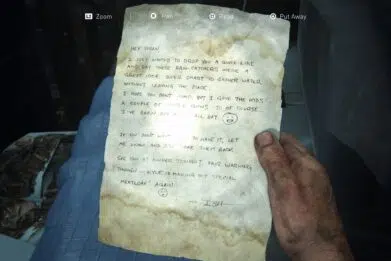 Zoom Pan Read Put Away
HEY SUSAN
I JUST WANTED TO DROP YOU A QUICK LINE
AND SAY THOSE RAIN-CATCHERS WERE A
GREAT IDEA. SUPER SMART TO GATHER WATER
WITHOUT LEAVING THE PLACE.
I HOPE YOU DON'T MIND, BUT I GAVE THE KIDS
A COUPLE OF GUNS. SO OF COURSE
I'VE BEEN ALL DAY
IF YOU DON'T WANT TO HAVE IT, LET
ME KNOW AND BACK
SEE YOU AT DINNER TONIGHT. FAIR WARNING
THOUGH — KYLE IS MAKING HIS "SPECIAL
MEATLOAF" AGAIN!
— ISH